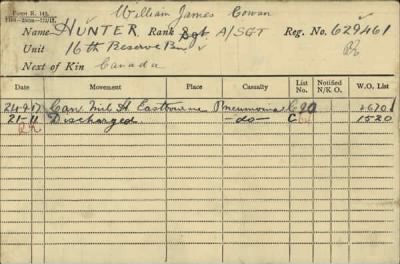 Form R. 149.
William James Cowan
Name HUNTER Rank Sgt A/SGT Reg. No. 629461
Unit 16th Reserve Bn
Next of Kin Canada
Date Movement Place Casualty List No. Notified N/K O. W.O. List
24-9-17 Can Mil H. Eastbourne Pneumonia C 20 2670
21-11 Discharged -do- C 1520